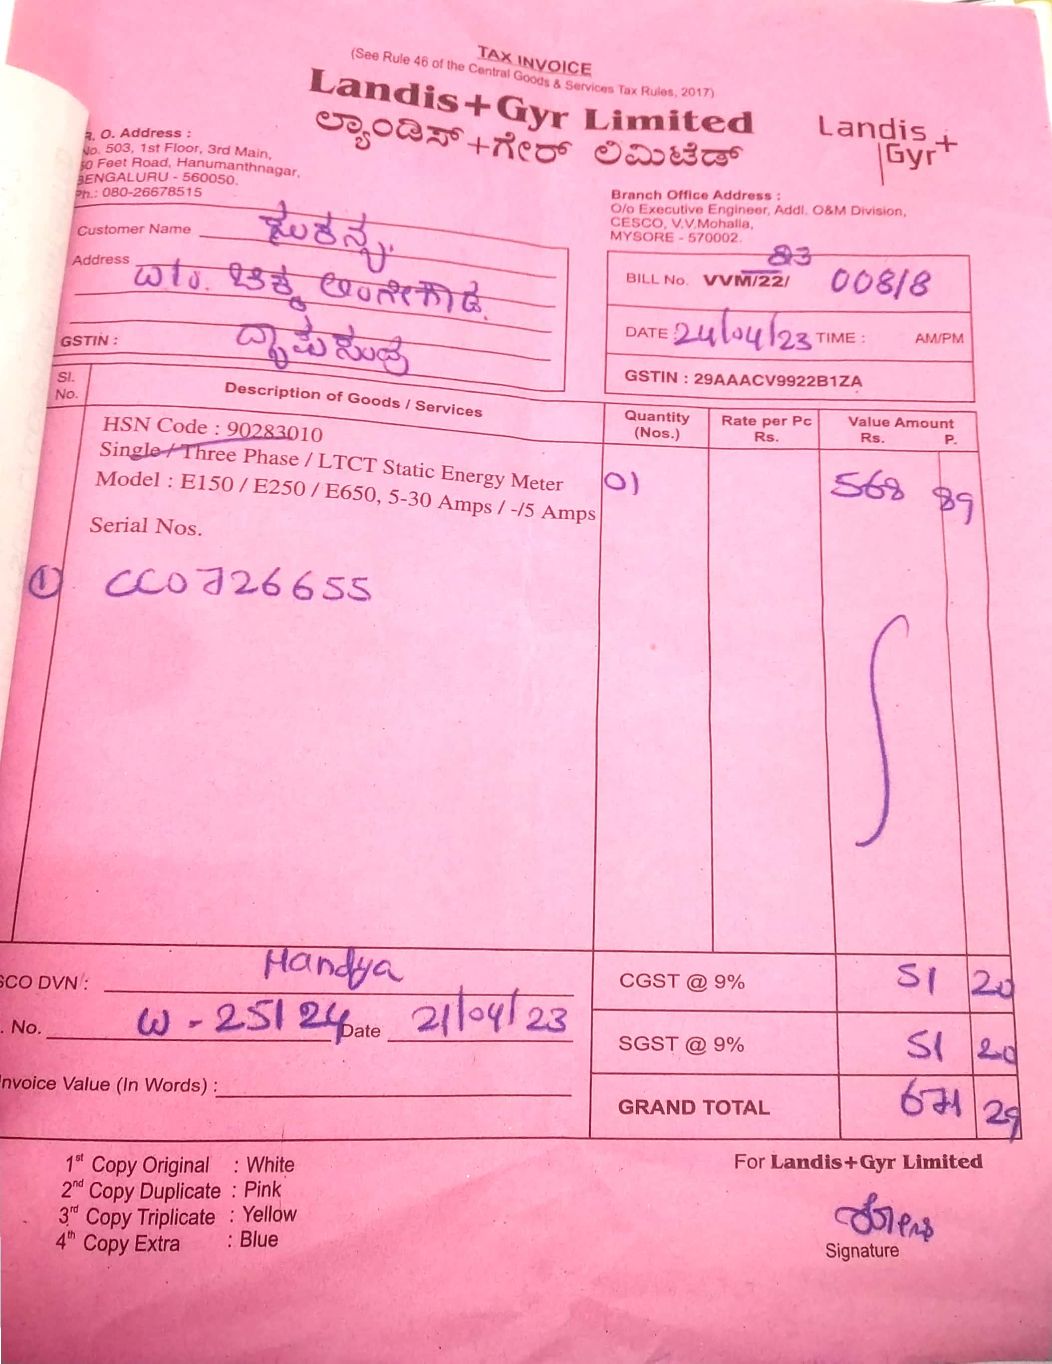 TAX INVOICE
(See Rule 46 of the Central Goods & Services Tax Rules, 2017)
Landis+Gyr Limited
ಲ್ಯಾಂಡಿಸ್+ಗೇರ್ ಲಿಮಿಟೆಡ್
Landis
Gyr+
R. O. Address :
No. 503, 1st Floor, 3rd Main,
50 Feet Road, Hanumanthnagar,
BENGALURU - 560050.
Ph.: 080-26678515
Branch Office Address :
O/o Executive Engineer, Addl. O&M Division,
CESCO, V.V.Mohalla,
MYSORE - 570002.
Customer Name ಸುಕನ್ಯ.
Address W/o. ಚಿಕ್ಕ ಲಿಂಗೇಗೌಡ.
GSTIN : ದ್ಯಾಪಸಂದ್ರ
23
BILL No. VVM/22/ 00818
DATE 24/04/23 TIME : AM/PM
GSTIN : 29AAACV9922B1ZA
Sl. No. Description of Goods / Services Quantity (Nos.) Rate per Pc Rs. Value Amount Rs. P.
HSN Code : 90283010
Single / Three Phase / LTCT Static Energy Meter
Model : E150 / E250 / E650, 5-30 Amps / -/5 Amps 01 568 89
Serial Nos.
1 CC0726655
SCO DVN : Mandya CGST @ 9% 51 20
. No. W - 25124 Date 21/04/23 SGST @ 9% 51 20
Invoice Value (In Words) : GRAND TOTAL 671 29
1st Copy Original : White
2nd Copy Duplicate : Pink
3rd Copy Triplicate : Yellow
4th Copy Extra : Blue
For Landis+Gyr Limited
Signature